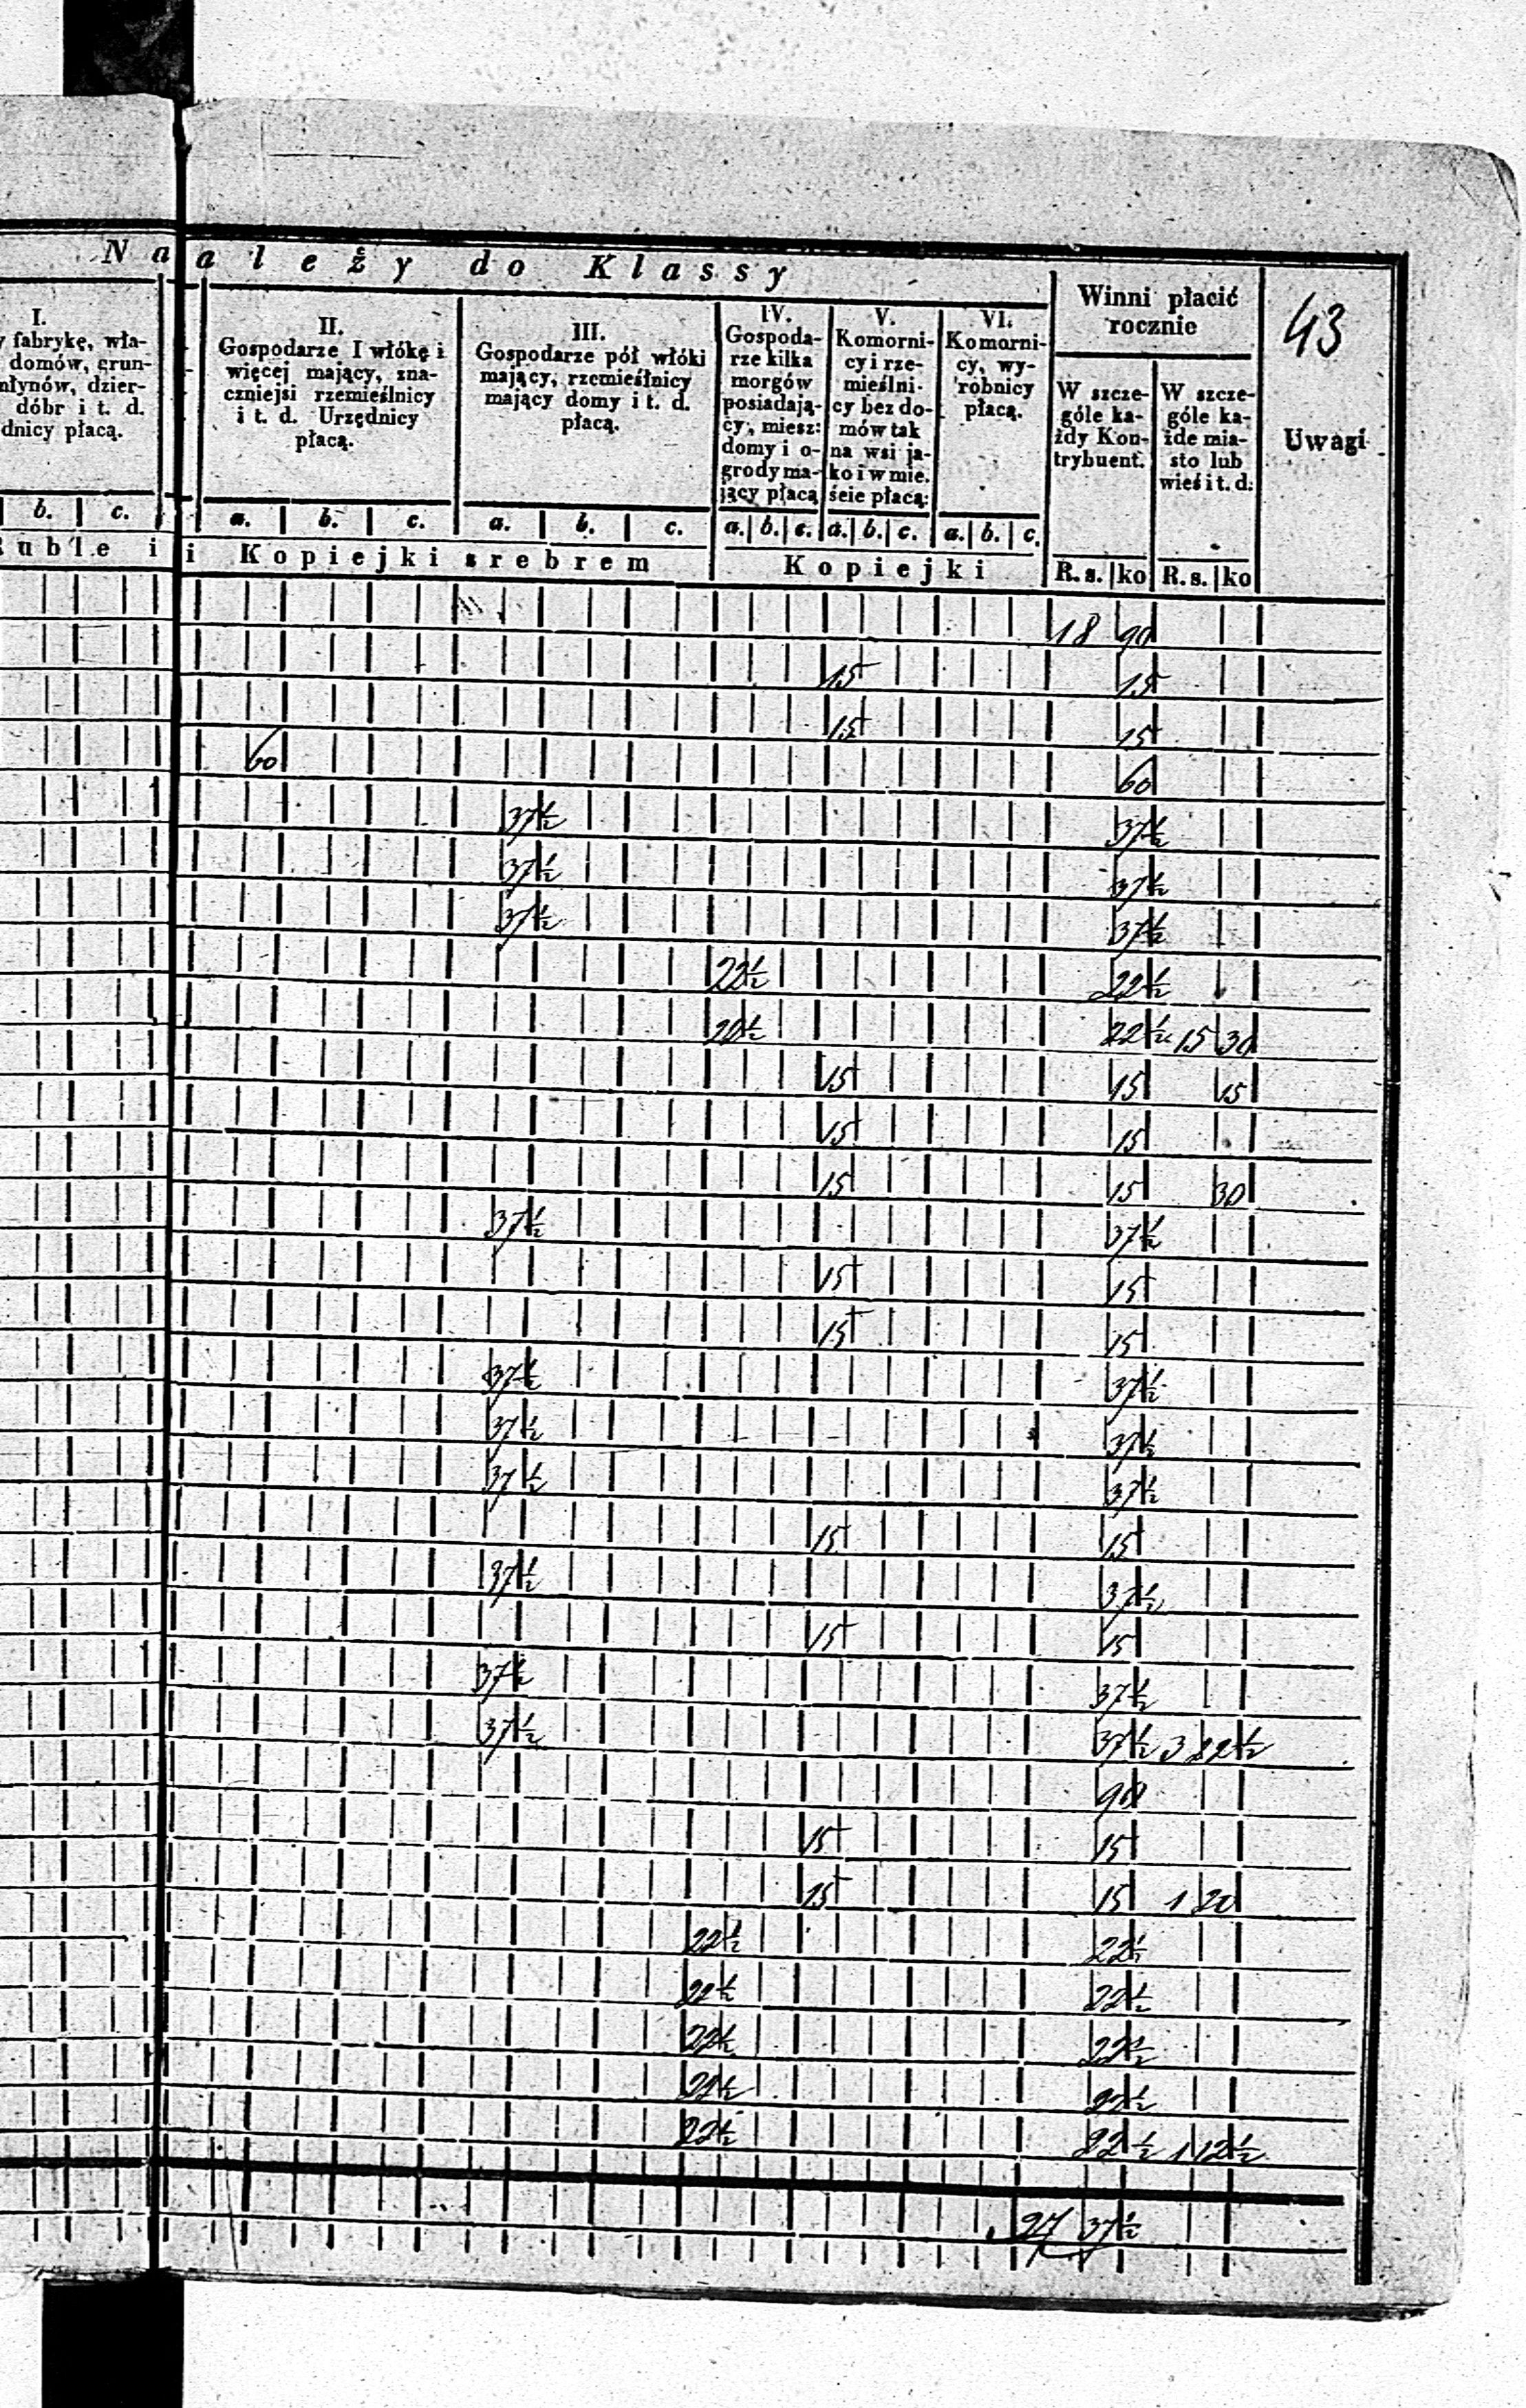 N a a l e ż y d o K l a s s y
43
I.
fabrykę, wła-
domów, grun-
młynów, dzier-
dóbr i t. d.
dnicy płacą.
II.
Gospodarze I włókę i
więcej mający, zna-
czniejsi rzemieślnicy
i t. d. Urzędnicy
płacą.
III.
Gospodarze pół włóki
mający, rzemieślnicy
mający domy i t. d.
płacą.
IV.
Gospoda-
rze kilka
morgów
posiadają-
cy, miesz:
domy i o-
grody ma-
jący płacą
V.
Komorni-
cy i rze-
mieślni-
cy bez do-
mów tak
na wsi ja-
ko i w mie.
ście płacą:
VI.
Komorni-
cy, wy-
robnicy
płacą.
Winni płacić
rocznie
W szcze-
góle ka-
żdy Kon-
trybuent.
W szcze-
góle ka-
żde mia-
sto lub
wieś i t. d.
Uwagi
b. c. a. b. c. a. b. c. a. b. c. a. b. c. a. b. c.
uble i i Kopiejki srebrem Kopiejki R. s. ko R. s. ko
18 90
15 15
15 15
60 60
37½ 37½
37½ 37½
37½ 37½
22½ 22½
22½ 22½ 15 30
15 15 15
15 15
15 15 30
37½ 37½
15 15
15 15
37½ 37½
37½ 37½
37½ 37½
15 15
37½ 37½
15 15
37½ 37½
37½ 37½ 3 82½
90
15 15
15 15 1 20
22½ 22½
22½ 22½
22½ 22½
22½ 22½
22½ 22½ 1 12½
37½